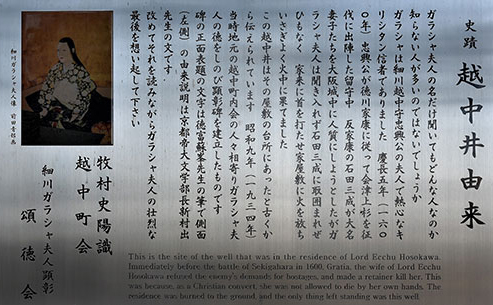 史蹟 越中井由来
ガラシャ夫人の名だけ聞いてもどんな人なのか
知らない人が多いのではないでしょうか
ガラシャは細川越中守忠興公の夫人で熱心なキ
リシタン信者でありました 慶長五年(一六〇
〇年)忠興公が徳川家康に従って会津上杉を征
伐に出陣した留守中 反家康の石田三成が大名
妻子たちを大阪城中に人質にしようとしたがガ
ラシャ夫人は聞き入れず石田三成に取囲まれぜ
ひもなく 家来に首を打たせ家屋敷に火を放ち
いさぎよく火中に果てました
この越中井はその屋敷の台所にあったと古くか
ら伝えられています 昭和九年(一九三四年)
当時地元の越中町内会の人々相寄りガラシャ夫
人の徳をしのび顕彰碑を建立したものです
碑の正面表題の文字は徳富蘇峯先生の筆で側面
(左側)の由来説明は京都帝大文学部長新村出
先生の文です
改めてそれを読みながらガラシャ夫人の壮烈な
最後を想い起して下さい
細川ガラシャ夫人像 前田青邨画
牧村史陽識
越中町会
細川ガラシャ夫人顕彰
頌徳会
This is the site of the well that was in the residence of Lord Ecchu Hosokawa.
Immediately before the battle of Sekigahara in 1600, Gratia, the wife of Lord Ecchu
Hosokawa refused the enemy's demands for hostages, and made a retainer kill her. This
was because, as a Christian convert, she was not allowed to die by her own hands. The
residence was burned to the ground, and the only thing left standing was this well.